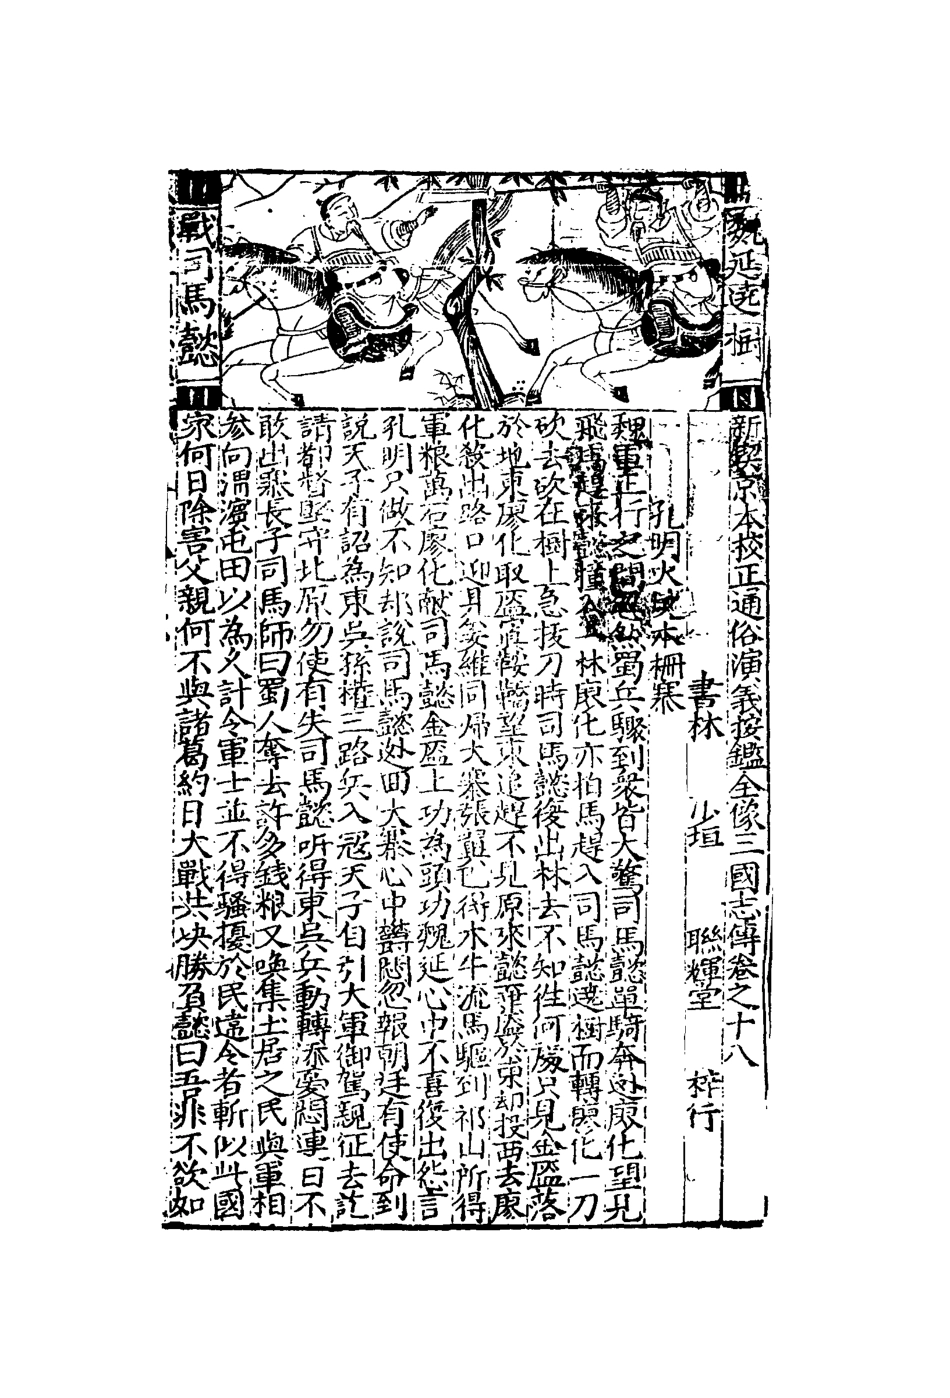 魏延遶樹
戰司馬懿
新鍥京本校正通俗演義按鑑全像三國志傳卷之十八
書林 少垣 聯輝堂 梓行
孔明火燒木柵寨
魏軍正行之間忽然蜀兵驟到衆皆大驚司馬懿單騎奔逃廖化望見
飛馬趕來懿撞入林廖化亦拍馬趕入司馬懿遶樹而轉廖化一刀
砍去砍在樹上急拔刀時司馬懿後出林去不知徃何處只見金盔落
於地東廖化取盔應鞍轎望東追趕不見原來懿棄盔於東却投西去廖
化殺出路口迎見姜維同歸大寨張嶷已待木牛流馬驅到祁山所得
軍粮萬石廖化献司馬懿金盔上功為頭功魏延心中不喜復出怨言
孔明只做不知却說司馬懿逃囬大寨心中欝悶忽報朝廷有使命到
說天子有詔為東吳孫權三路兵入寇天子自引大軍御駕親征去訖
請都督堅守北原勿使有失司馬懿听得東吳兵動轉添憂悶連日不
敢出寨長子司馬師曰蜀人奪去許多錢粮又喚集土居之民與軍相
参向渭濵屯田以為久計令軍士並不得騷擾於民違令者斬似此國
家何日除害父親何不與諸葛約日大戰共决勝負懿曰吾非不欲如